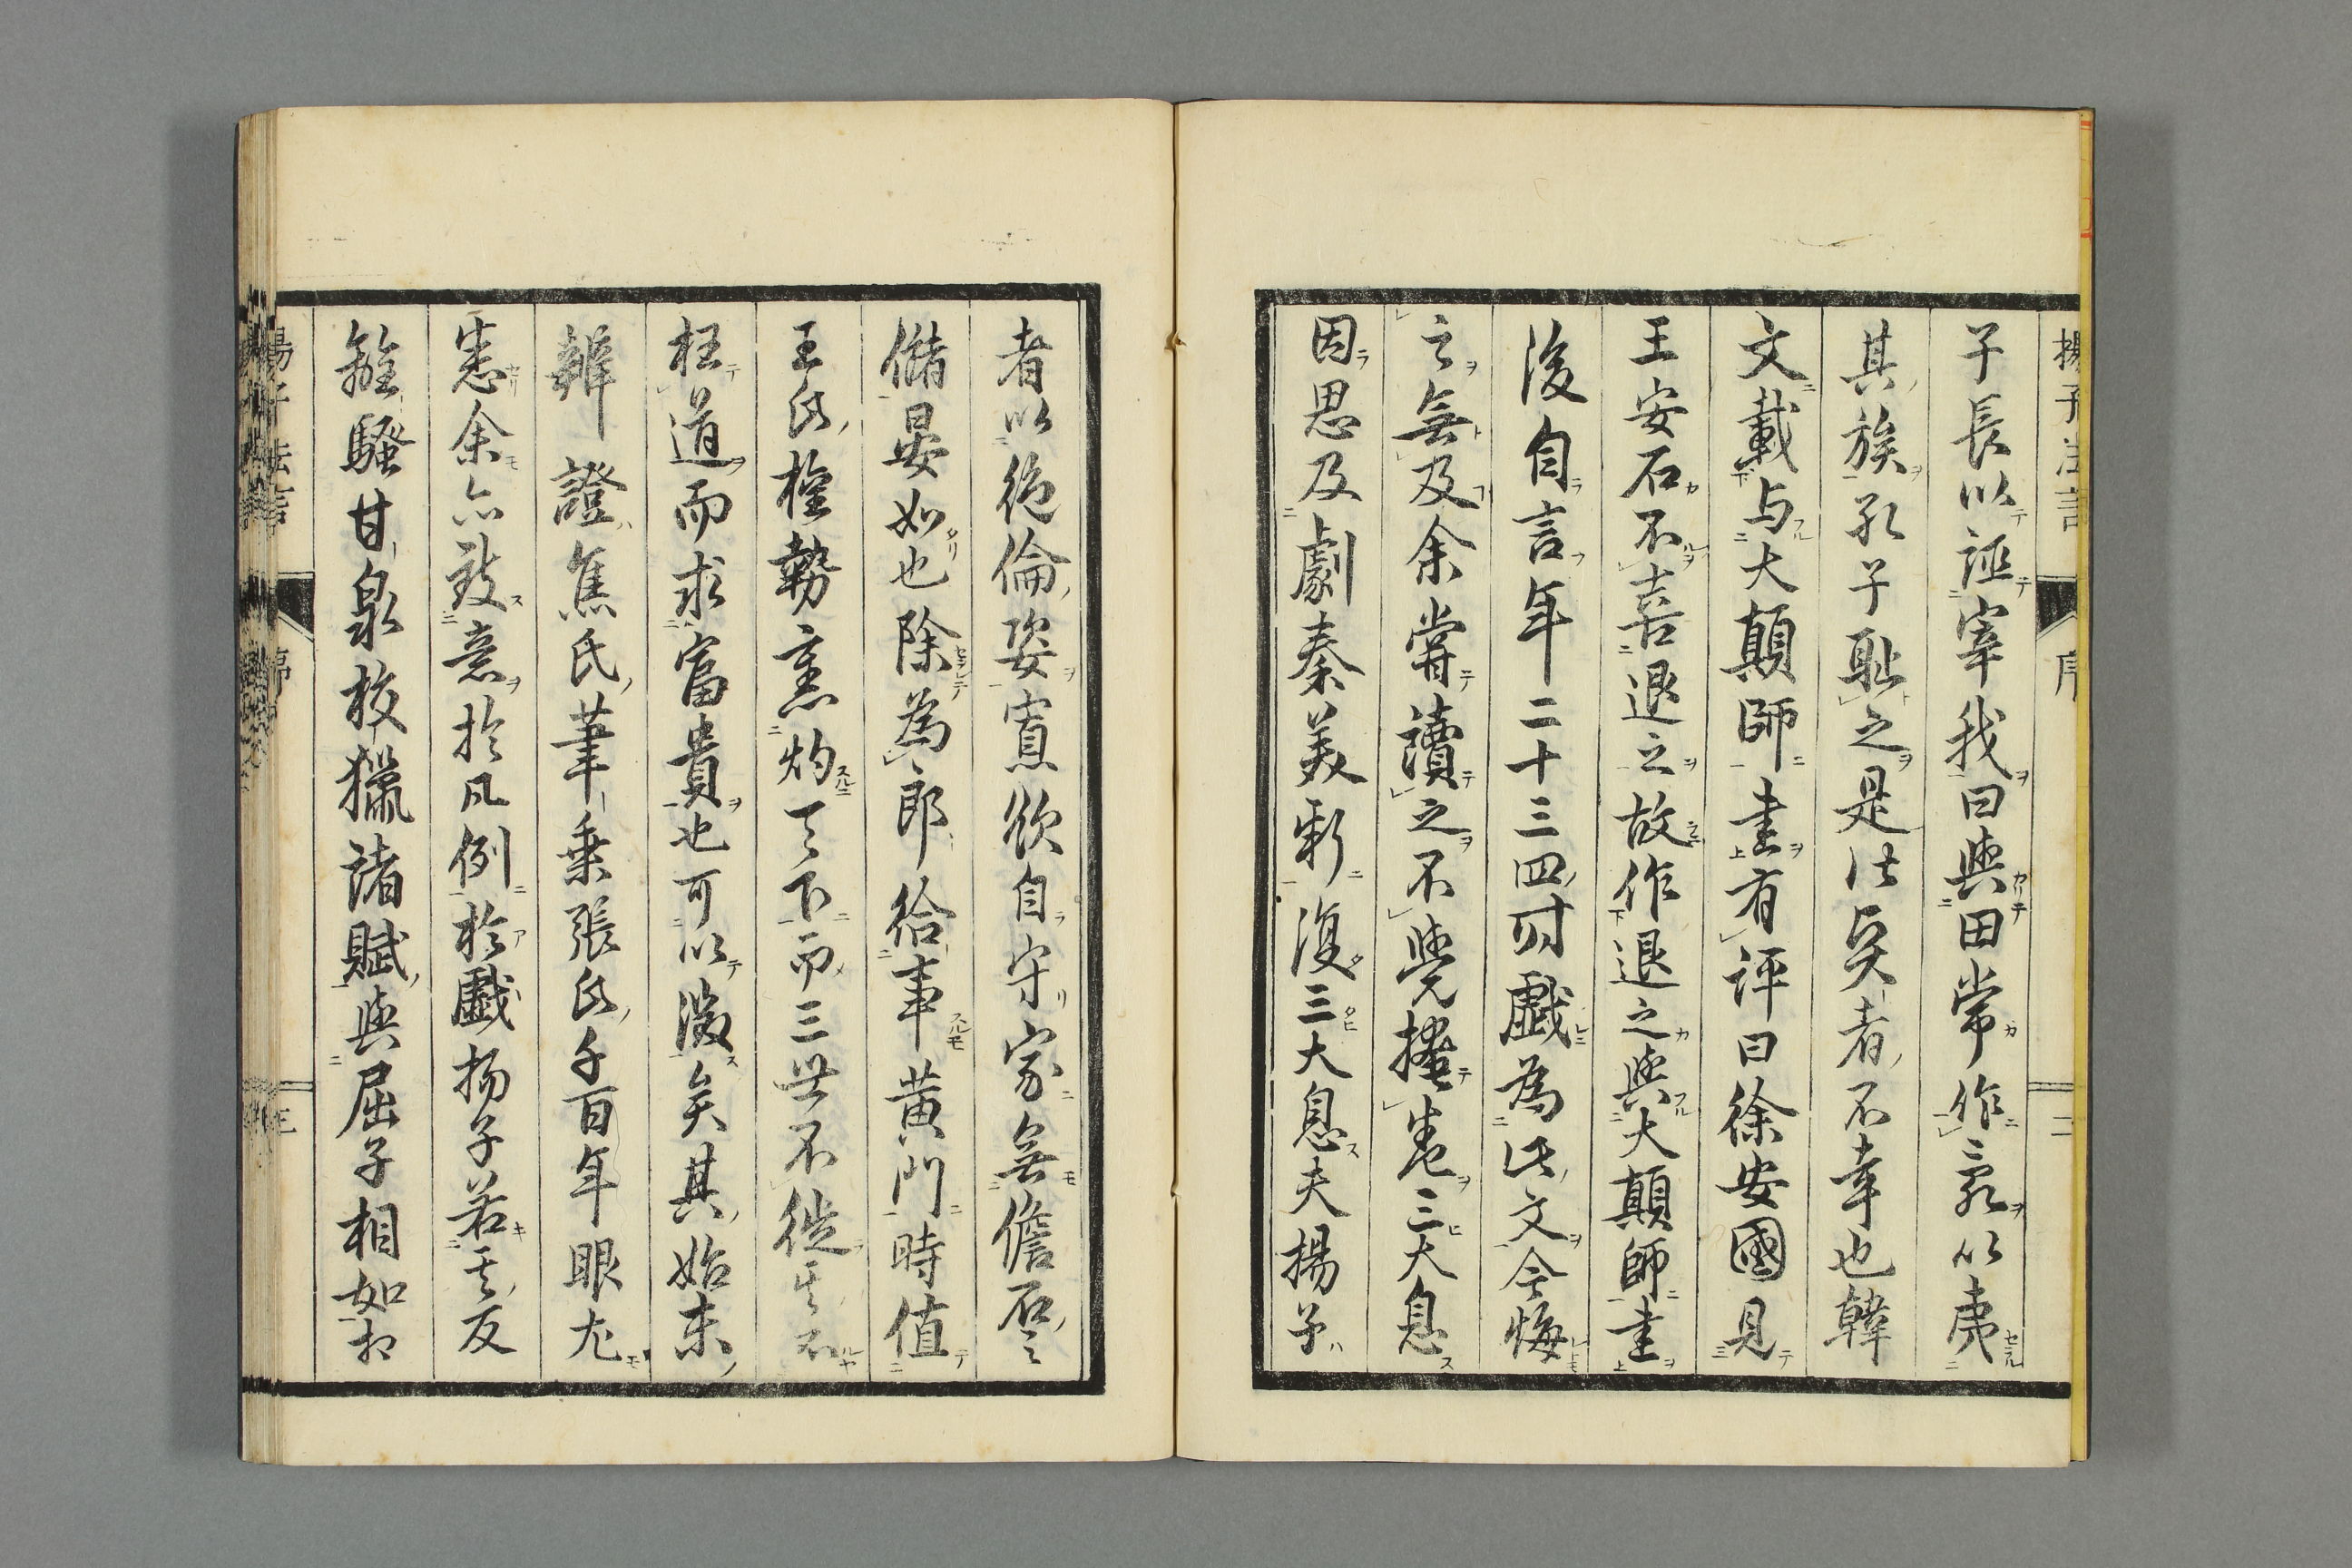 揚子法言 序 二
子長以誣宰我曰與田常作乱以夷
其族孔子耻之是者不幸也韓
文載与大顛師書有評曰徐安國見
王安石不喜退之故作退之與大顛師書
後自言年二十三四時戲為此文今悔
之無及余嘗讀之不覺掩卷三大息
因思及劇秦美新復三大息夫揚子
者以絶倫姿寡欲自守家無儋石之
儲晏如也除為郎給事黄門時值
王氏權勢熏灼天下而三世不徙其不
枉道而求富貴也可以矣其始末
辨證焦氏筆乗張氏千百年眼尤
悉余亦致意於凡例於戲揚子若其反
離騷甘泉校獵諸賦與屈子相如相
揚子法言 序 三